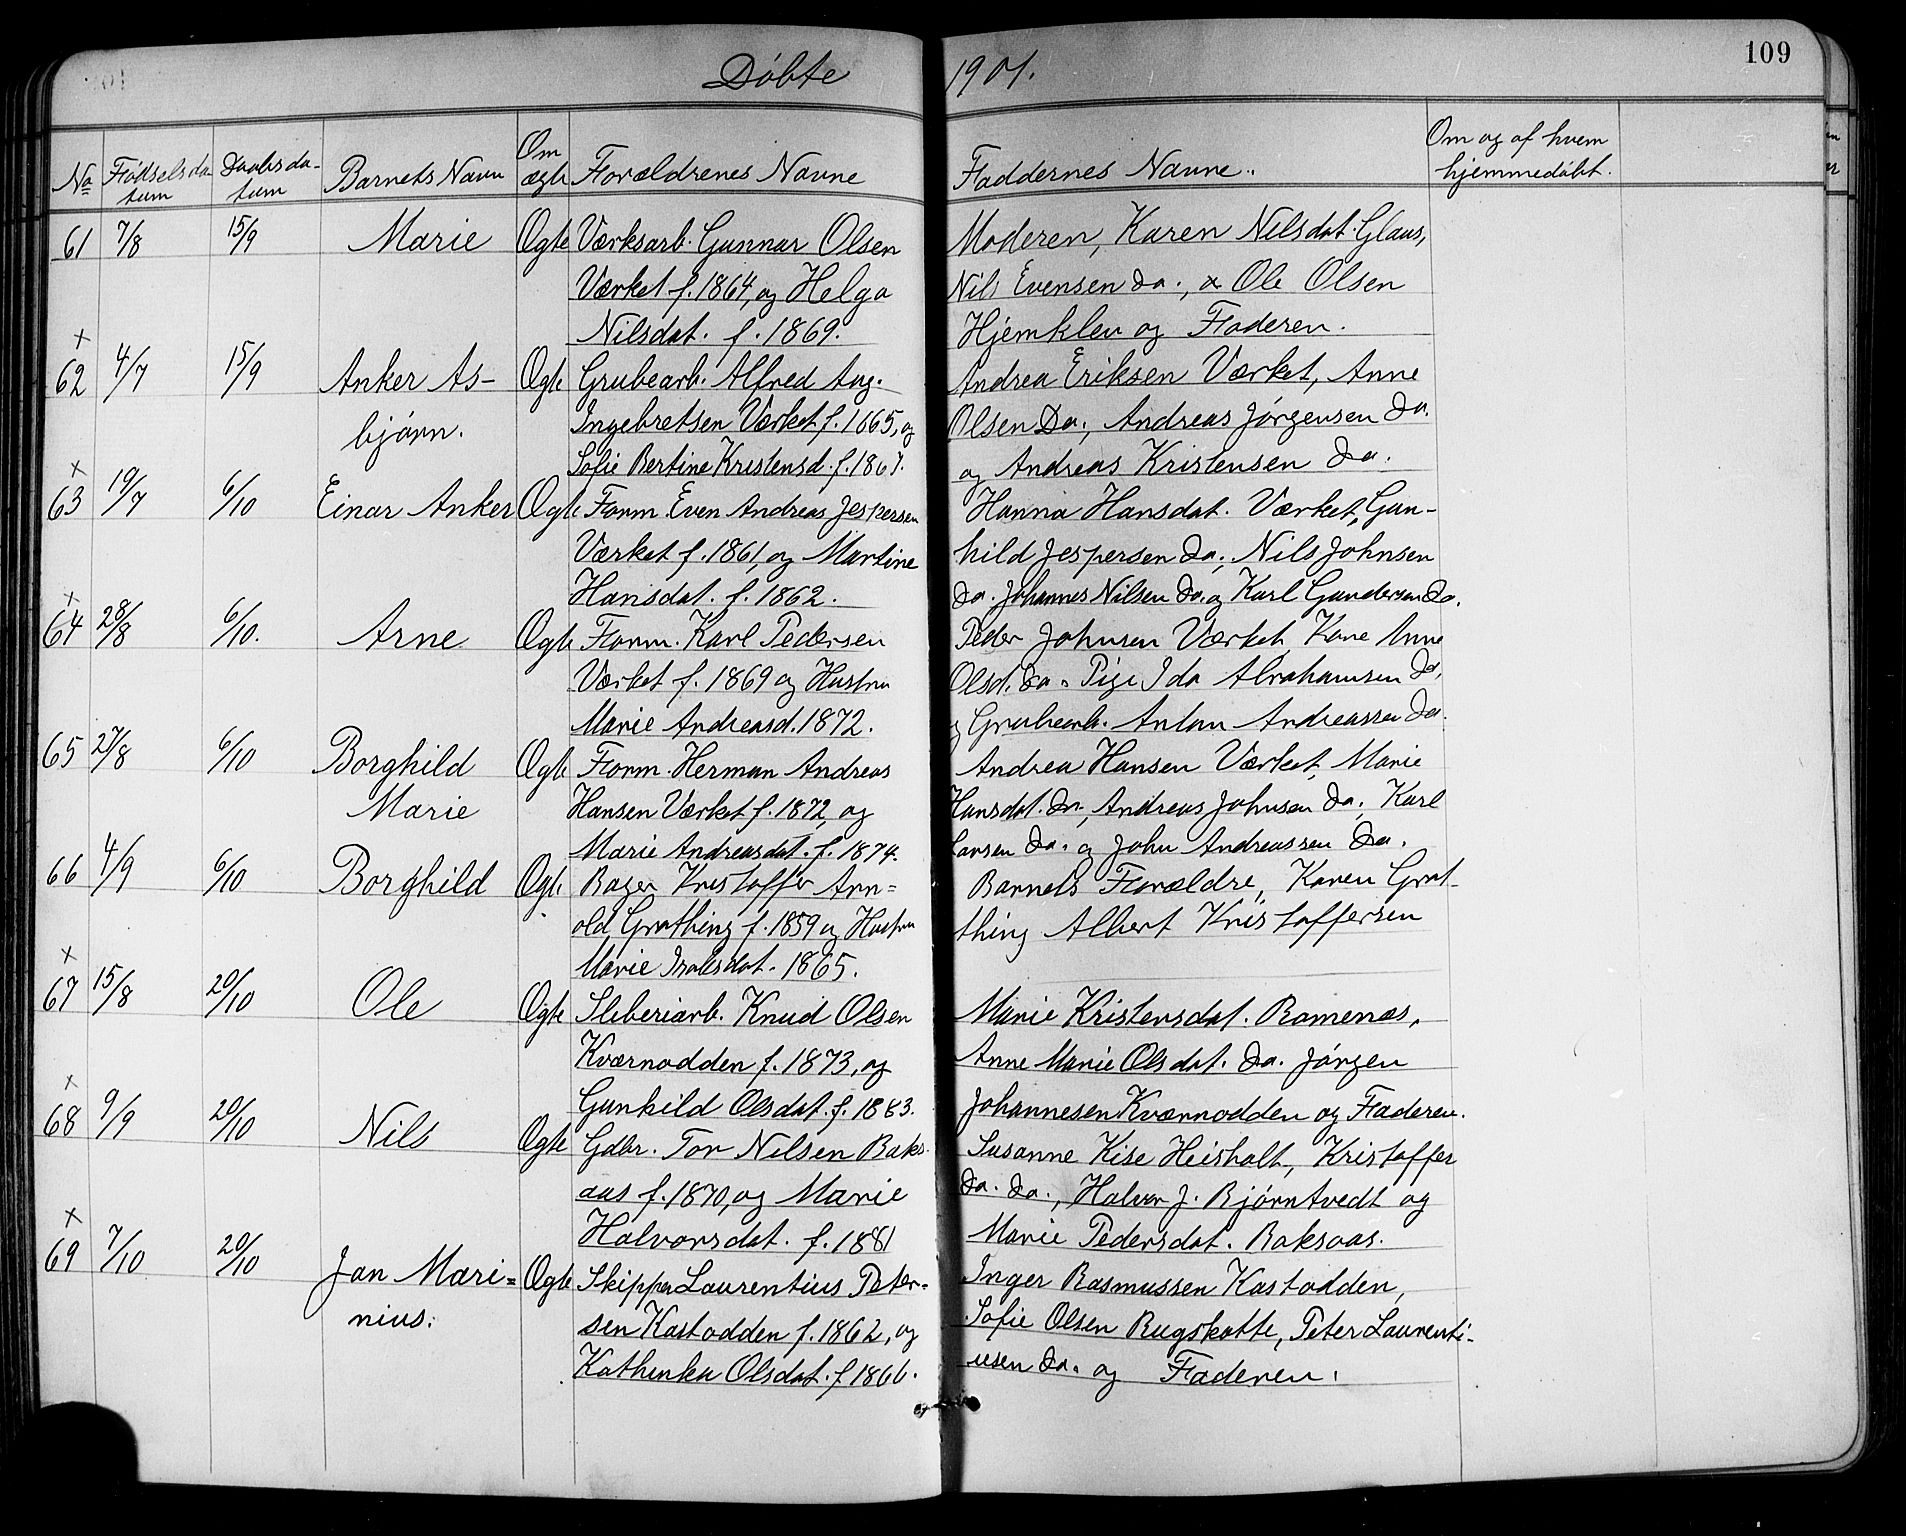 Döbte 1901. 109
No Födselsdatum Daabsdatum Barnets Navn Om ægte Forældrenes Navne Faddernes Navne. Om og af hvem hjemmedøbt.
61 7/8 15/9 Marie Ægte Værksarb. Gunnar Olsen Moderen, Karen Nilsdat. Glaus,
Værket f. 1864, og Helga Nils Evensen do., Ole Olsen
Nilsdat. f. 1869. Hjemklev og Faderen.
x
62 4/7 15/9 Anker As- Ægte Grubearb. Alfred Aug. Andrea Eriksen Værket, Anne
bjørn. Ingebretsen Værket f. 1865, og Olsen Do., Andreas Jørgensen do.
Sofie Bertine Kristensd. f. 1867. og Andreas Kristensen do.
x
63 19/7 6/10 Einar Anker Ægte Form. Even Andreas Jespersen Hanna Hansdat. Værket, Gun-
Værket f. 1861, og Martine hild Jespersen do., Nils Johnsen
Hansdat. f. 1862. do. Johannes Nilsen do. og Karl Gundersen do.
x
64 28/8 6/10. Arne Ægte Form. Karl Pedersen Peder Johnsen Værket, Kone Anne
Værket f. 1869 og Hustru Olsd. do. Pige Ida Abrahamsen do,
Marie Andreasd. 1872. og Grubearb. Anton Andreassen do.
65 27/8 6/10 Borghild Ægte Form. Herman Andreas Andrea Hansen Værket, Marie
Marie Hansen Værket f. 1872, og Hansdat. do., Andreas Johnsen do., Karl
Marie Andreasdat. f. 1874. Larsen do. og John Andreassen do.
66 4/9 6/10 Borghild Ægte Bager Kristoffer Arn= Barnets Forældre, Karen Grot-
old Grothing f. 1859 og Hustru thing Albert Kristoffersen
Marie Isaksdat. 1865.
x
67 15/8 20/10 Ole Ægte Sliberiarb. Knud Olsen Marie Kristensdat. Romenæs,
Kværnodden f. 1873, og Anne Marie Olsdat. do. Jørgen
Gunhild Olsdat. f. 1883. Johannesen Kværnodden og Faderen.
x
68 9/9 20/10 Nils Ægte Gdbr. Tor Nilsen Baks- Susanne Kise Heisholt, Kristoffer
aas f. 1870, og Marie do. do., Halvor J. Bjørntvedt og
Halvorsdat. f. 1881 Marie Pedersdat. Baksaas.
x
69 7/10 20/10 Jan Mari= Ægte Skipper Laurentius Peter= Inger Rasmussen Kastodden,
nius. sen Kastodden f. 1862, og Sofie Olsen Rugskotte, Peter Laurenti-
Kathinka Olsdat. f 1866. usen do. og Faderen.